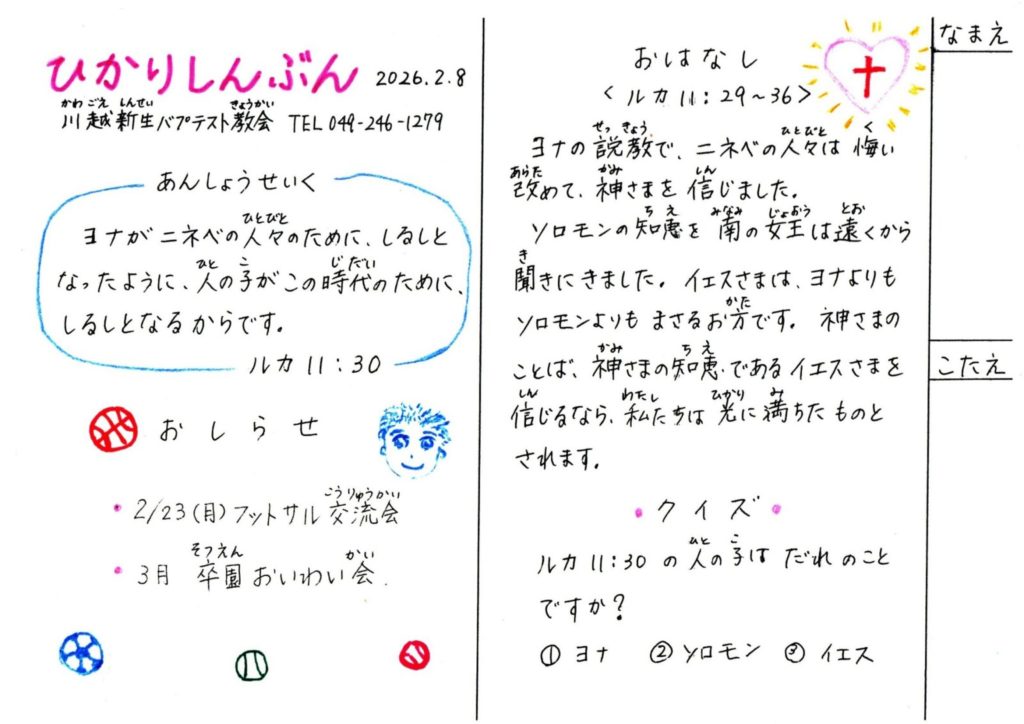 ひかりしんぶん 2026.2.8
川越新生バプテスト教会 TEL 049-246-1279
あんしょうせいく
ヨナがニネベの人々のために、しるしと
なったように、人の子がこの時代のために、
しるしとなるからです。
ルカ 11:30
おしらせ
・2/23(月)フットサル交流会
・3月 卒園おいわい会.
おはなし
<ルカ 11:29~36>
ヨナの説教で、ニネベの人々は悔い
改めて、神さまを信じました。
ソロモンの知恵を南の女王は遠くから
聞きにきました。イエスさまは、ヨナよりも
ソロモンよりもまさるお方です。神さまの
ことば、神さまの知恵であるイエスさまを
信じるなら、私たちは光に満ちたものと
されます。
・クイズ・
ルカ 11:30 の人の子はだれのこと
ですか?
① ヨナ ② ソロモン ③ イエス
なまえ
こたえ